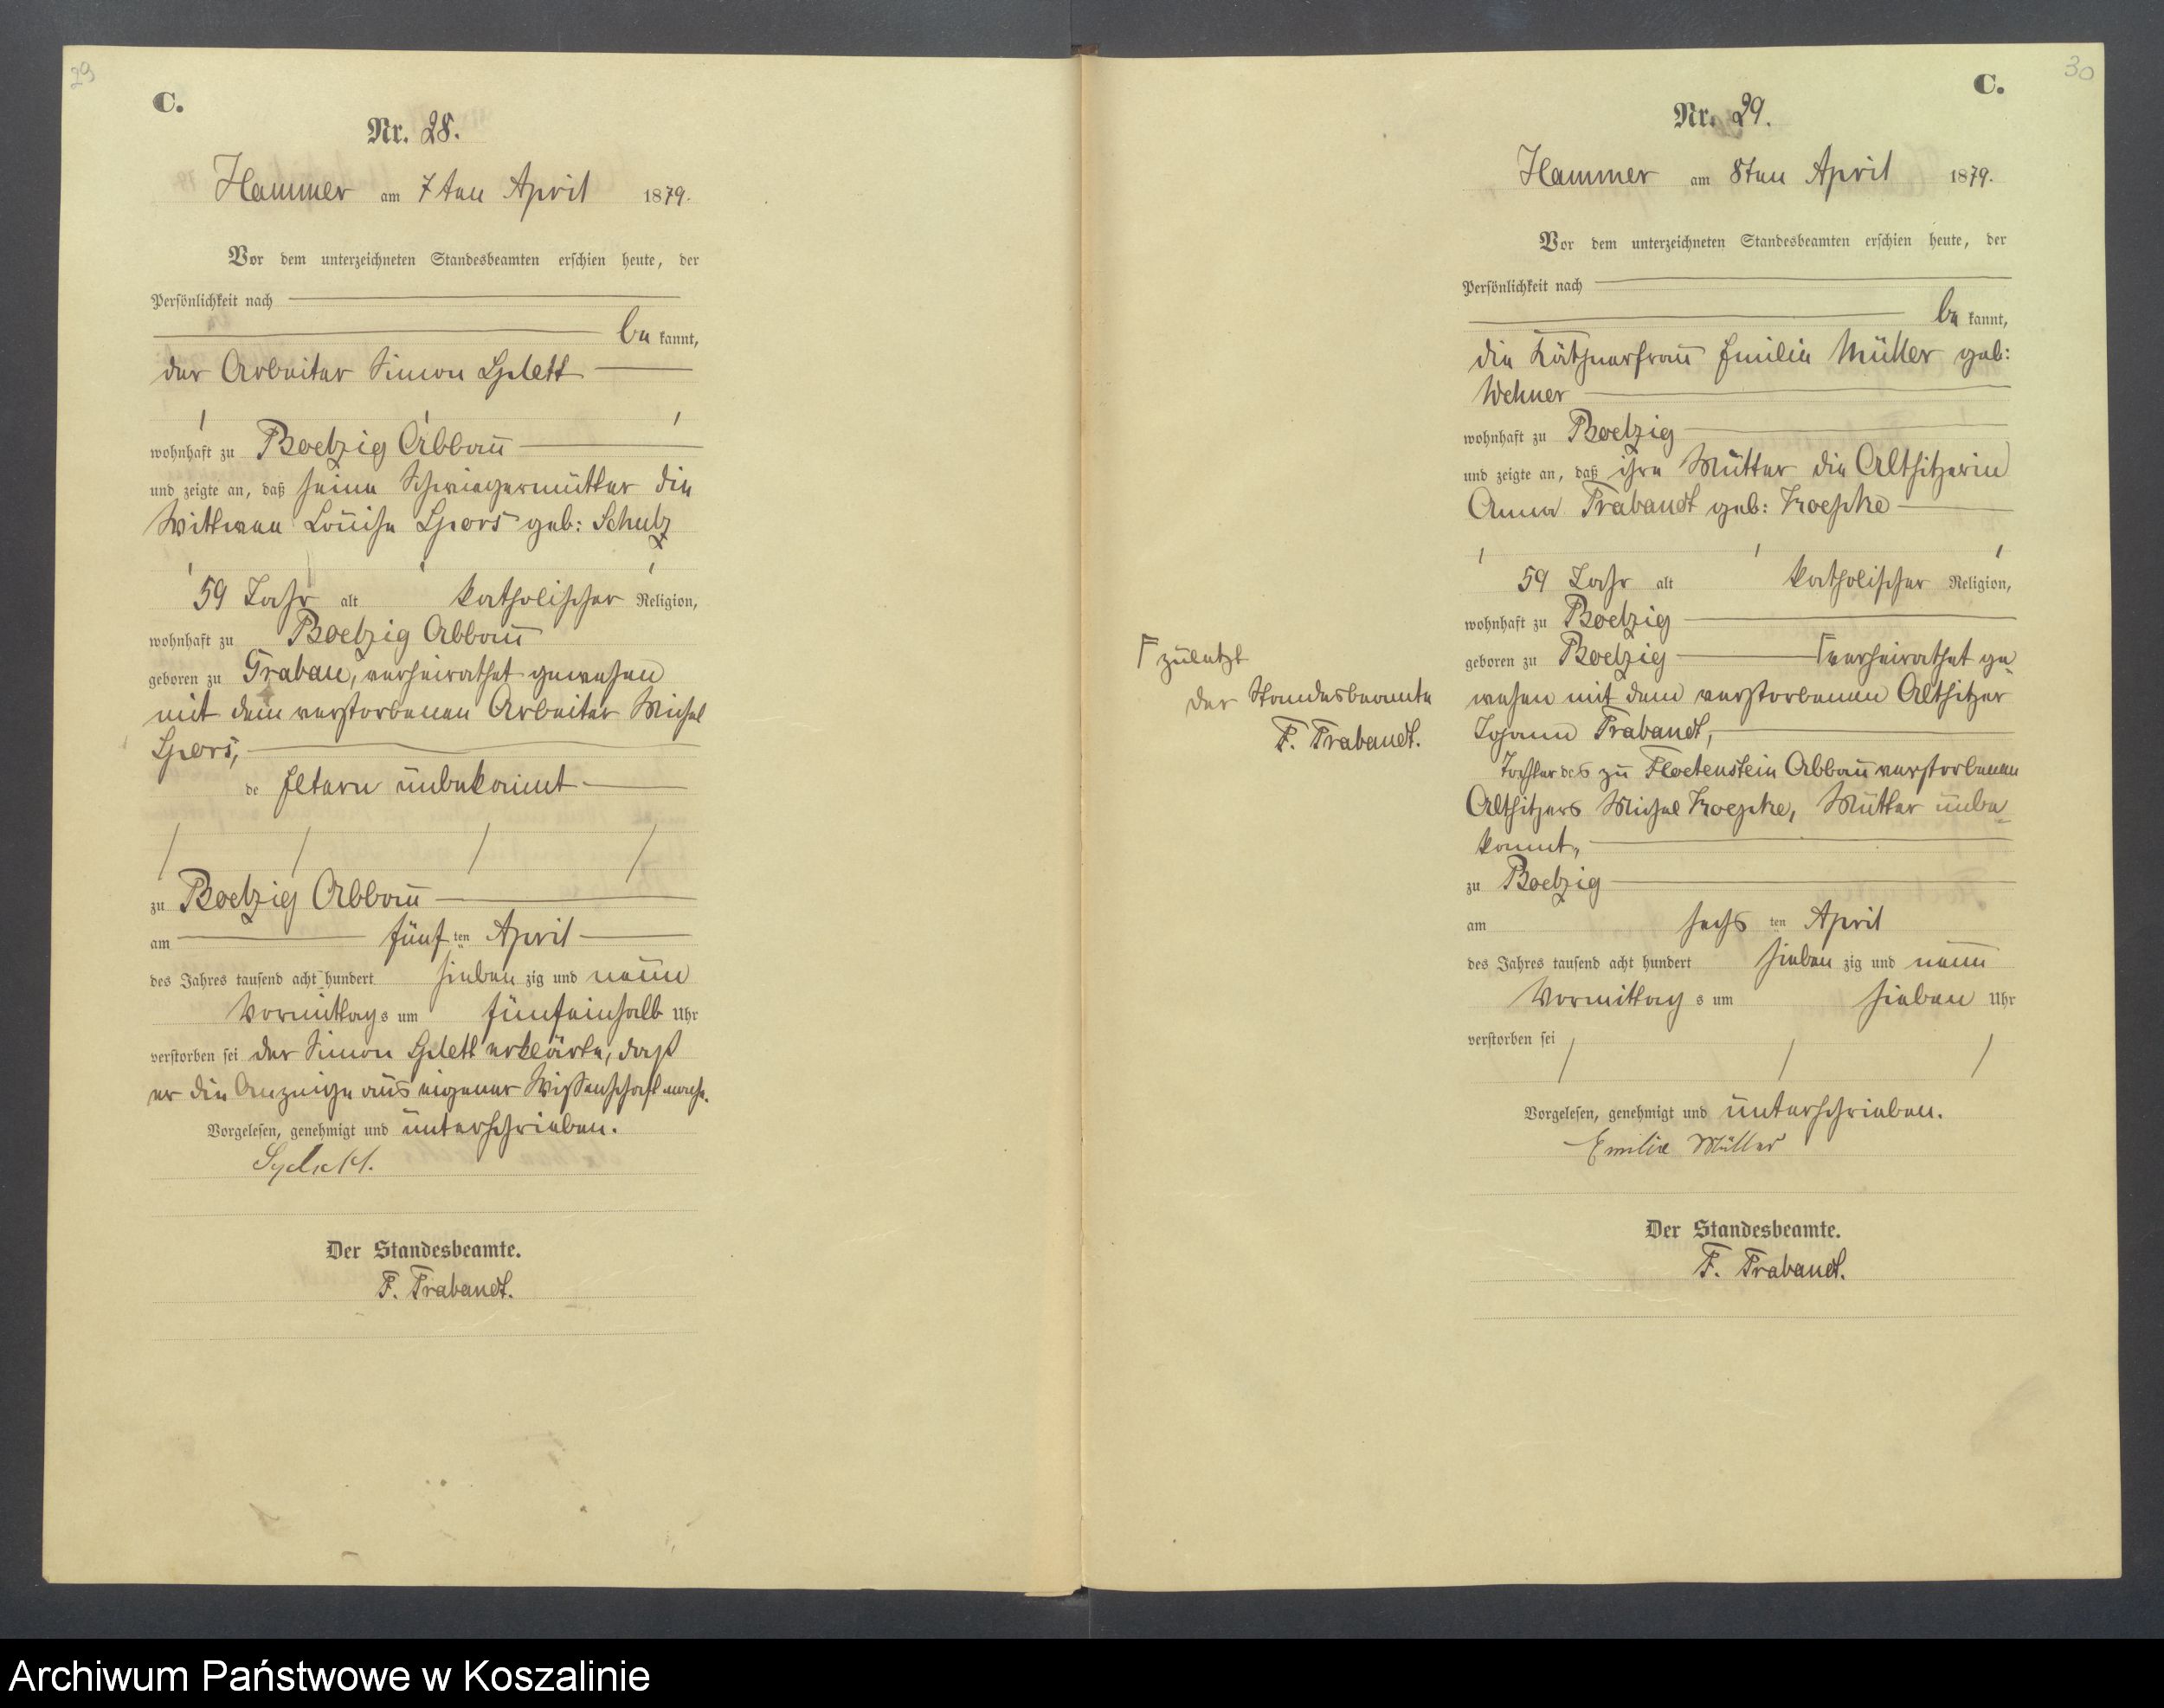 29
C.
Nr. 28.
Hammer am 7ten April 1879.
Vor dem unterzeichneten Standesbeamten erschien heute, der
Persönlichkeit nach
be kannt,
der Arbeiter Simon
wohnhaft zu Boetzig Abbau
und zeigte an, daß seine Schwiegermutter die
Wittwee Louise Spors geb: Schulz
59 Jahr alt katholischer Religion,
wohnhaft zu Boetzig Abbau
geboren zu Grabau, verheirathet gewesen
mit dem verstorbenen Arbeiter Michel
Spors,
de Eltern unbekannt
zu Boetzig Abbau
am fünf ten April
des Jahres tausend acht hundert sieben zig und neun
Vormittag s um fünfeinhalb Uhr
verstorben sei der Simon erklärte, daß
er die Anzeige aus eigener Wissenschaft mache.
Vorgelesen, genehmigt und unterschrieben.
Der Standesbeamte.
F. Trabandt.
30
C.
Nr. 29.
Hammer am 8ten April 1879.
Vor dem unterzeichneten Standesbeamten erschien heute, der
Persönlichkeit nach
be kannt,
die Käthnerfrau Emilie Müller geb:
Wehner
wohnhaft zu Boetzig
und zeigte an, daß ihre Mutter die Altsitzerin
Anna Trabandt geb: Kroepke
59 Jahr alt katholischer Religion,
wohnhaft zu Boetzig
geboren zu Boetzig Γ verheirathet ge
wesen mit dem verstorbenen Altsitzer
Johann Trabandt,
Tochter des zu Floetenstein Abbau verstorbenen
Altsitzers Michel Kroepke, Mutter unbe
kannt,
zu Boetzig
am sechs ten April
des Jahres tausend acht hundert sieben zig und neun
Vormittag s um sieben Uhr
verstorben sei
Vorgelesen, genehmigt und unterschrieben.
Emilie Müller
Der Standesbeamte.
F. Trabandt.
Γ zuletzt
der Standesbeamte
F. Trabandt.
Archiwum Państwowe w Koszalinie